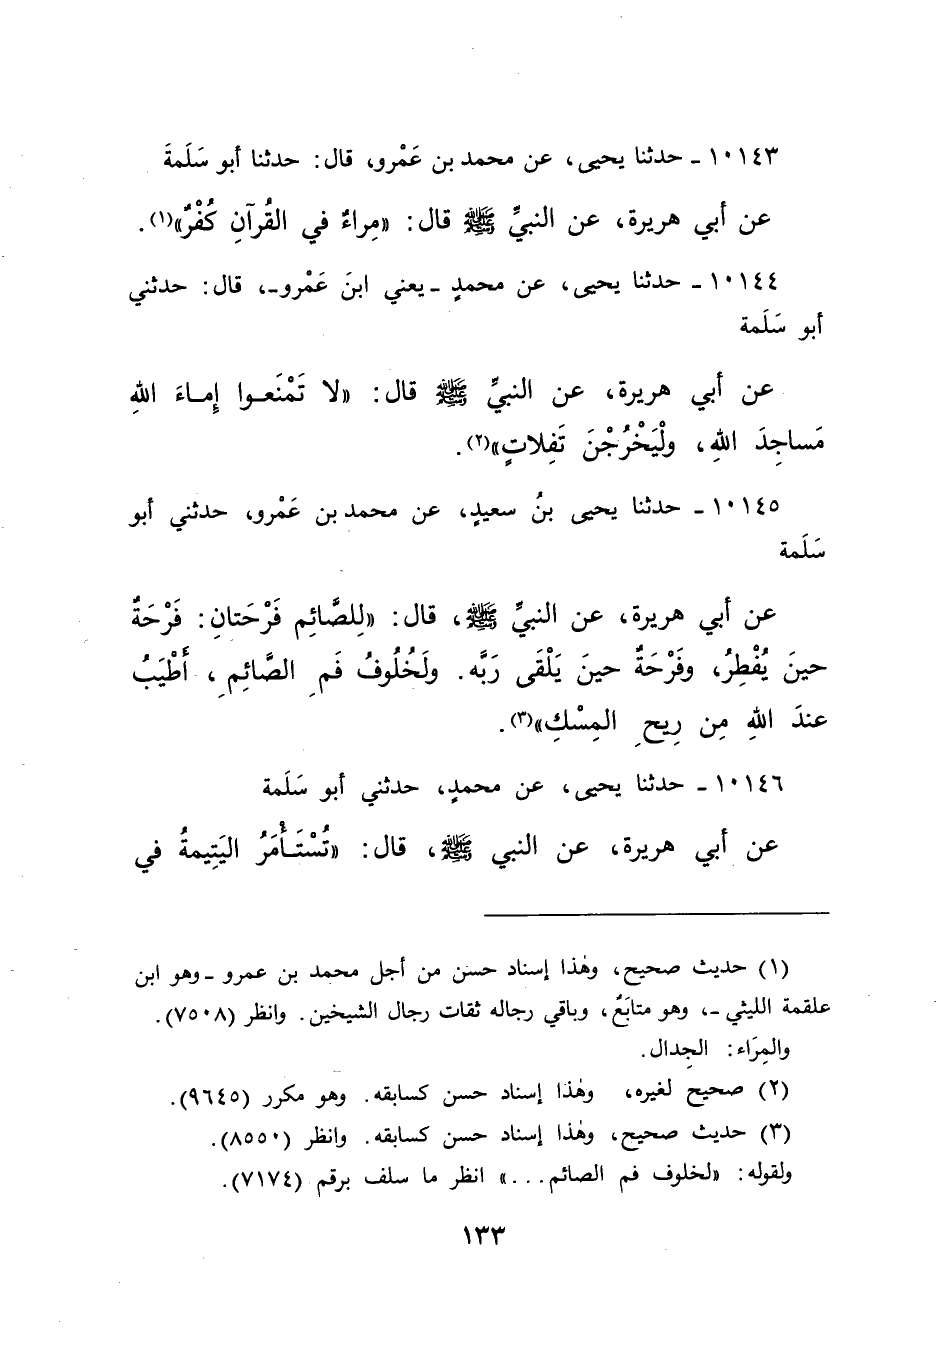 ١٠١٤٣ ـ حدثنا يحيى، عن محمد بن عَمْرو، قال: حدثنا أبو سَلَمةَ
عن أبي هريرة، عن النبيِّ ﷺ قال: «مِراءٌ في القُرآنِ كُفْرٌ»(١).
١٠١٤٤ ـ حدثنا يحيى، عن محمدٍ ـ يعني ابنَ عَمْرو ـ، قال: حدثني
أبو سَلَمة
عن أبي هريرة، عن النبيِّ ﷺ قال: «لا تَمْنَعوا إِماءَ اللهِ
مَساجِدَ اللهِ، ولْيَخْرُجْنَ تَفِلاتٍ»(٢).
١٠١٤٥ ـ حدثنا يحيى بنُ سعيدٍ، عن محمد بن عَمْرو، حدثني أبو
سَلَمة
عن أبي هريرة، عن النبيِّ ﷺ، قال: «لِلصَّائِم فَرْحَتانِ: فَرْحَةٌ
حينَ يُفْطِرُ، وفَرْحَةٌ حينَ يَلْقَى رَبَّه. ولَخُلُوفُ فَمِ الصَّائِمِ، أَطْيَبُ
عندَ اللهِ مِن رِيحِ المِسْكِ»(٣).
١٠١٤٦ ـ حدثنا يحيى، عن محمدٍ، حدثني أبو سَلَمة
عن أبي هريرة، عن النبي ﷺ، قال: «تُسْتَأْمَرُ اليَتِيمةُ في
(١) حديث صحيح، وهٰذا إسناد حسن من أجل محمد بن عمرو ـ وهو ابن
علقمة الليثي ـ، وهو متابَعٌ، وباقي رجاله ثقات رجال الشيخين. وانظر (٧٥٠٨).
والمِرَاء: الجِدال.
(٢) صحيح لغيره، وهٰذا إسناد حسن كسابقه. وهو مكرر (٩٦٤٥).
(٣) حديث صحيح، وهٰذا إسناد حسن كسابقه. وانظر (٨٥٥٠).
ولقوله: «لخلوف فم الصائم...» انظر ما سلف برقم (٧١٧٤).
١٣٣